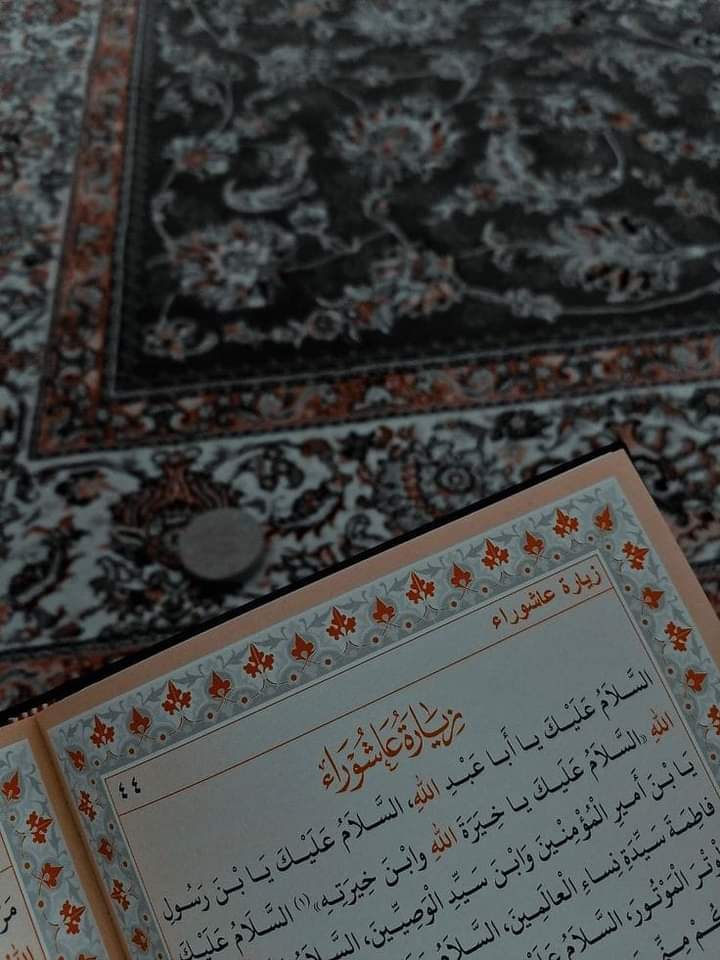 زيارة عاشوراء
٤٤
زِيَارَةُ عَاشُورَاء
السَّلَامُ عَلَيْكَ يا أَبا عَبْدِ اللهِ، السَّلَامُ عَلَيْكَ يَا بْنَ رَسُولِ
اللهِ «السَّلَامُ عَلَيْكَ يا خِيَرَةَ اللهِ وابْنَ خِيَرَتِهِ»(١) السَّلَامُ عَلَيْكَ
يَا بْنَ أَميرِ الْمُؤْمِنينَ وَابْنَ سَيِّدِ الْوَصِيّينَ، السَّلَامُ
فاطِمَةَ سَيِّدَةِ نِساءِ الْعالَمينَ، السَّلَامُ
الْمَوْتُورَ، السَّلَامُ
مِنّي